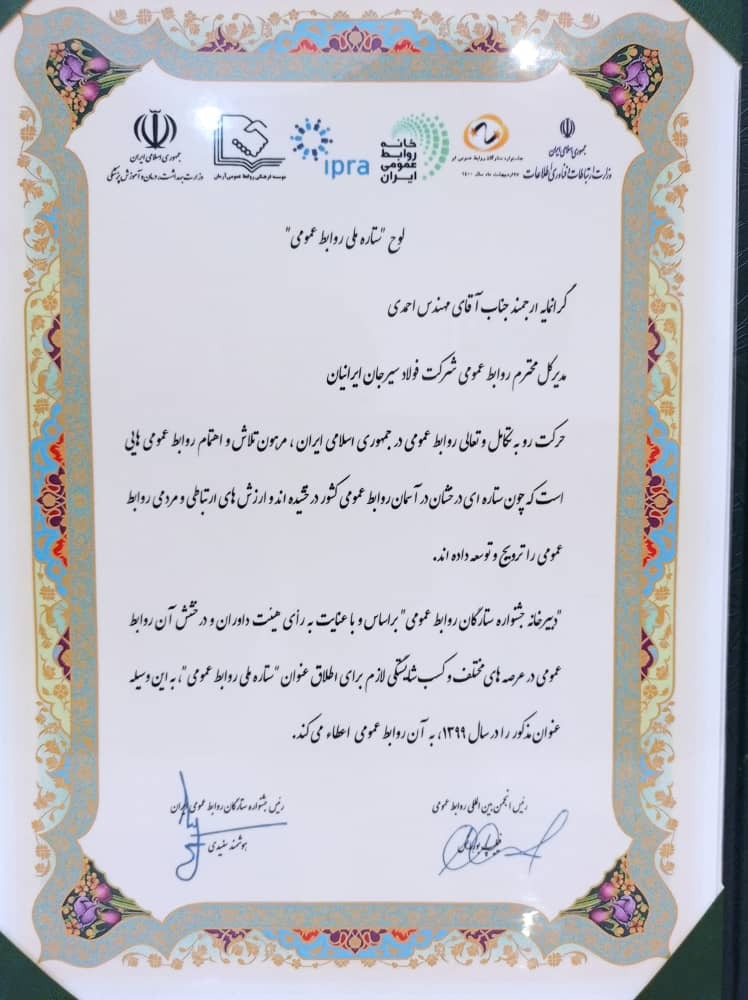 جمهوری اسلامی ایران
وزارت بهداشت، درمان و آموزش پزشکی
موسسه فرهنگی روابط عمومی آرمان
ipra
خانه
روابط
عمومی
ایران
جشنواره ستارگان روابط عمومی ایران
اردیبهشت ماه سال ۱۴۰۰
جمهوری اسلامی ایران
وزارت ارتباطات و فناوری اطلاعات
لوح "ستاره ملی روابط عمومی"
گرانمایه ارجمند جناب آقای مهندس احمدی
مدیرکل محترم روابط عمومی شرکت فولاد سیرجان ایرانیان
حرکت رو به تکامل و تعالی روابط عمومی در جمهوری اسلامی ایران، مرهون تلاش و اهتمام روابط عمومی هایی
است که چون ستاره ای درخشان در آسمان روابط عمومی کشور درخشیده اند و ارزش های ارتباطی و مردمی روابط
عمومی را ترویج و توسعه داده اند.
"دبیرخانه جشنواره ستارگان روابط عمومی" براساس و با عنایت به رأی هیئت داوران و درخشش آن روابط
عمومی در عرصه های مختلف و کسب شایستگی لازم برای اطلاق عنوان "ستاره ملی روابط عمومی"، به این وسیله
عنوان مذکور را در سال ۱۳۹۹، به آن روابط عمومی اعطاء می کند.
رئیس انجمن بین المللی روابط عمومی
فیلیپ
رئیس جشنواره ستارگان روابط عمومی ایران
هوشمند سفیدی